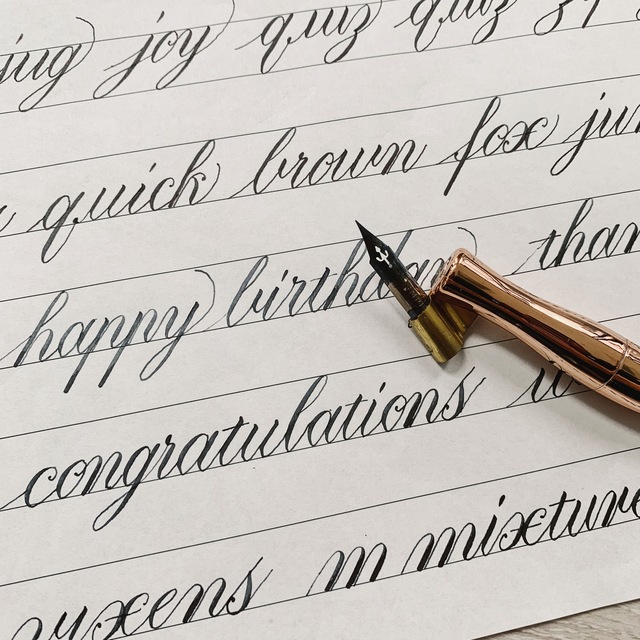 joy quiz quiz
quick brown fox
happy birthday
congratulations
vixens m mixture